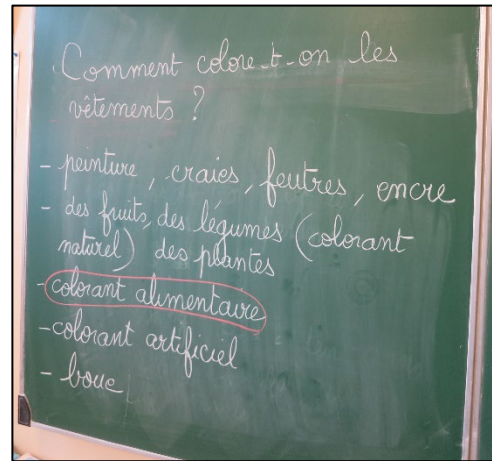 Comment colore-t-on les
vêtements ?
- peinture, craies, feutres, encre
- des fruits, des légumes (colorant
naturel) des plantes
- colorant alimentaire
- colorant artificiel
- boue